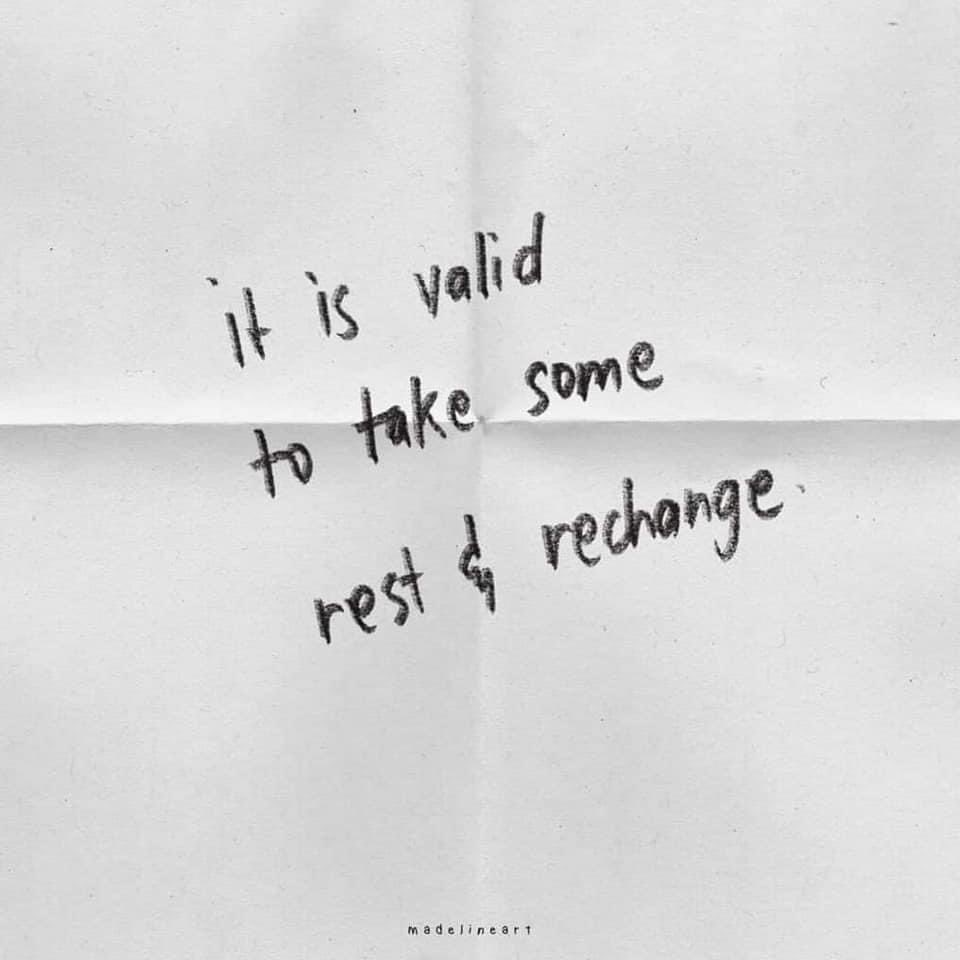 it is valid
to take some
rest & rechange.
madelineart